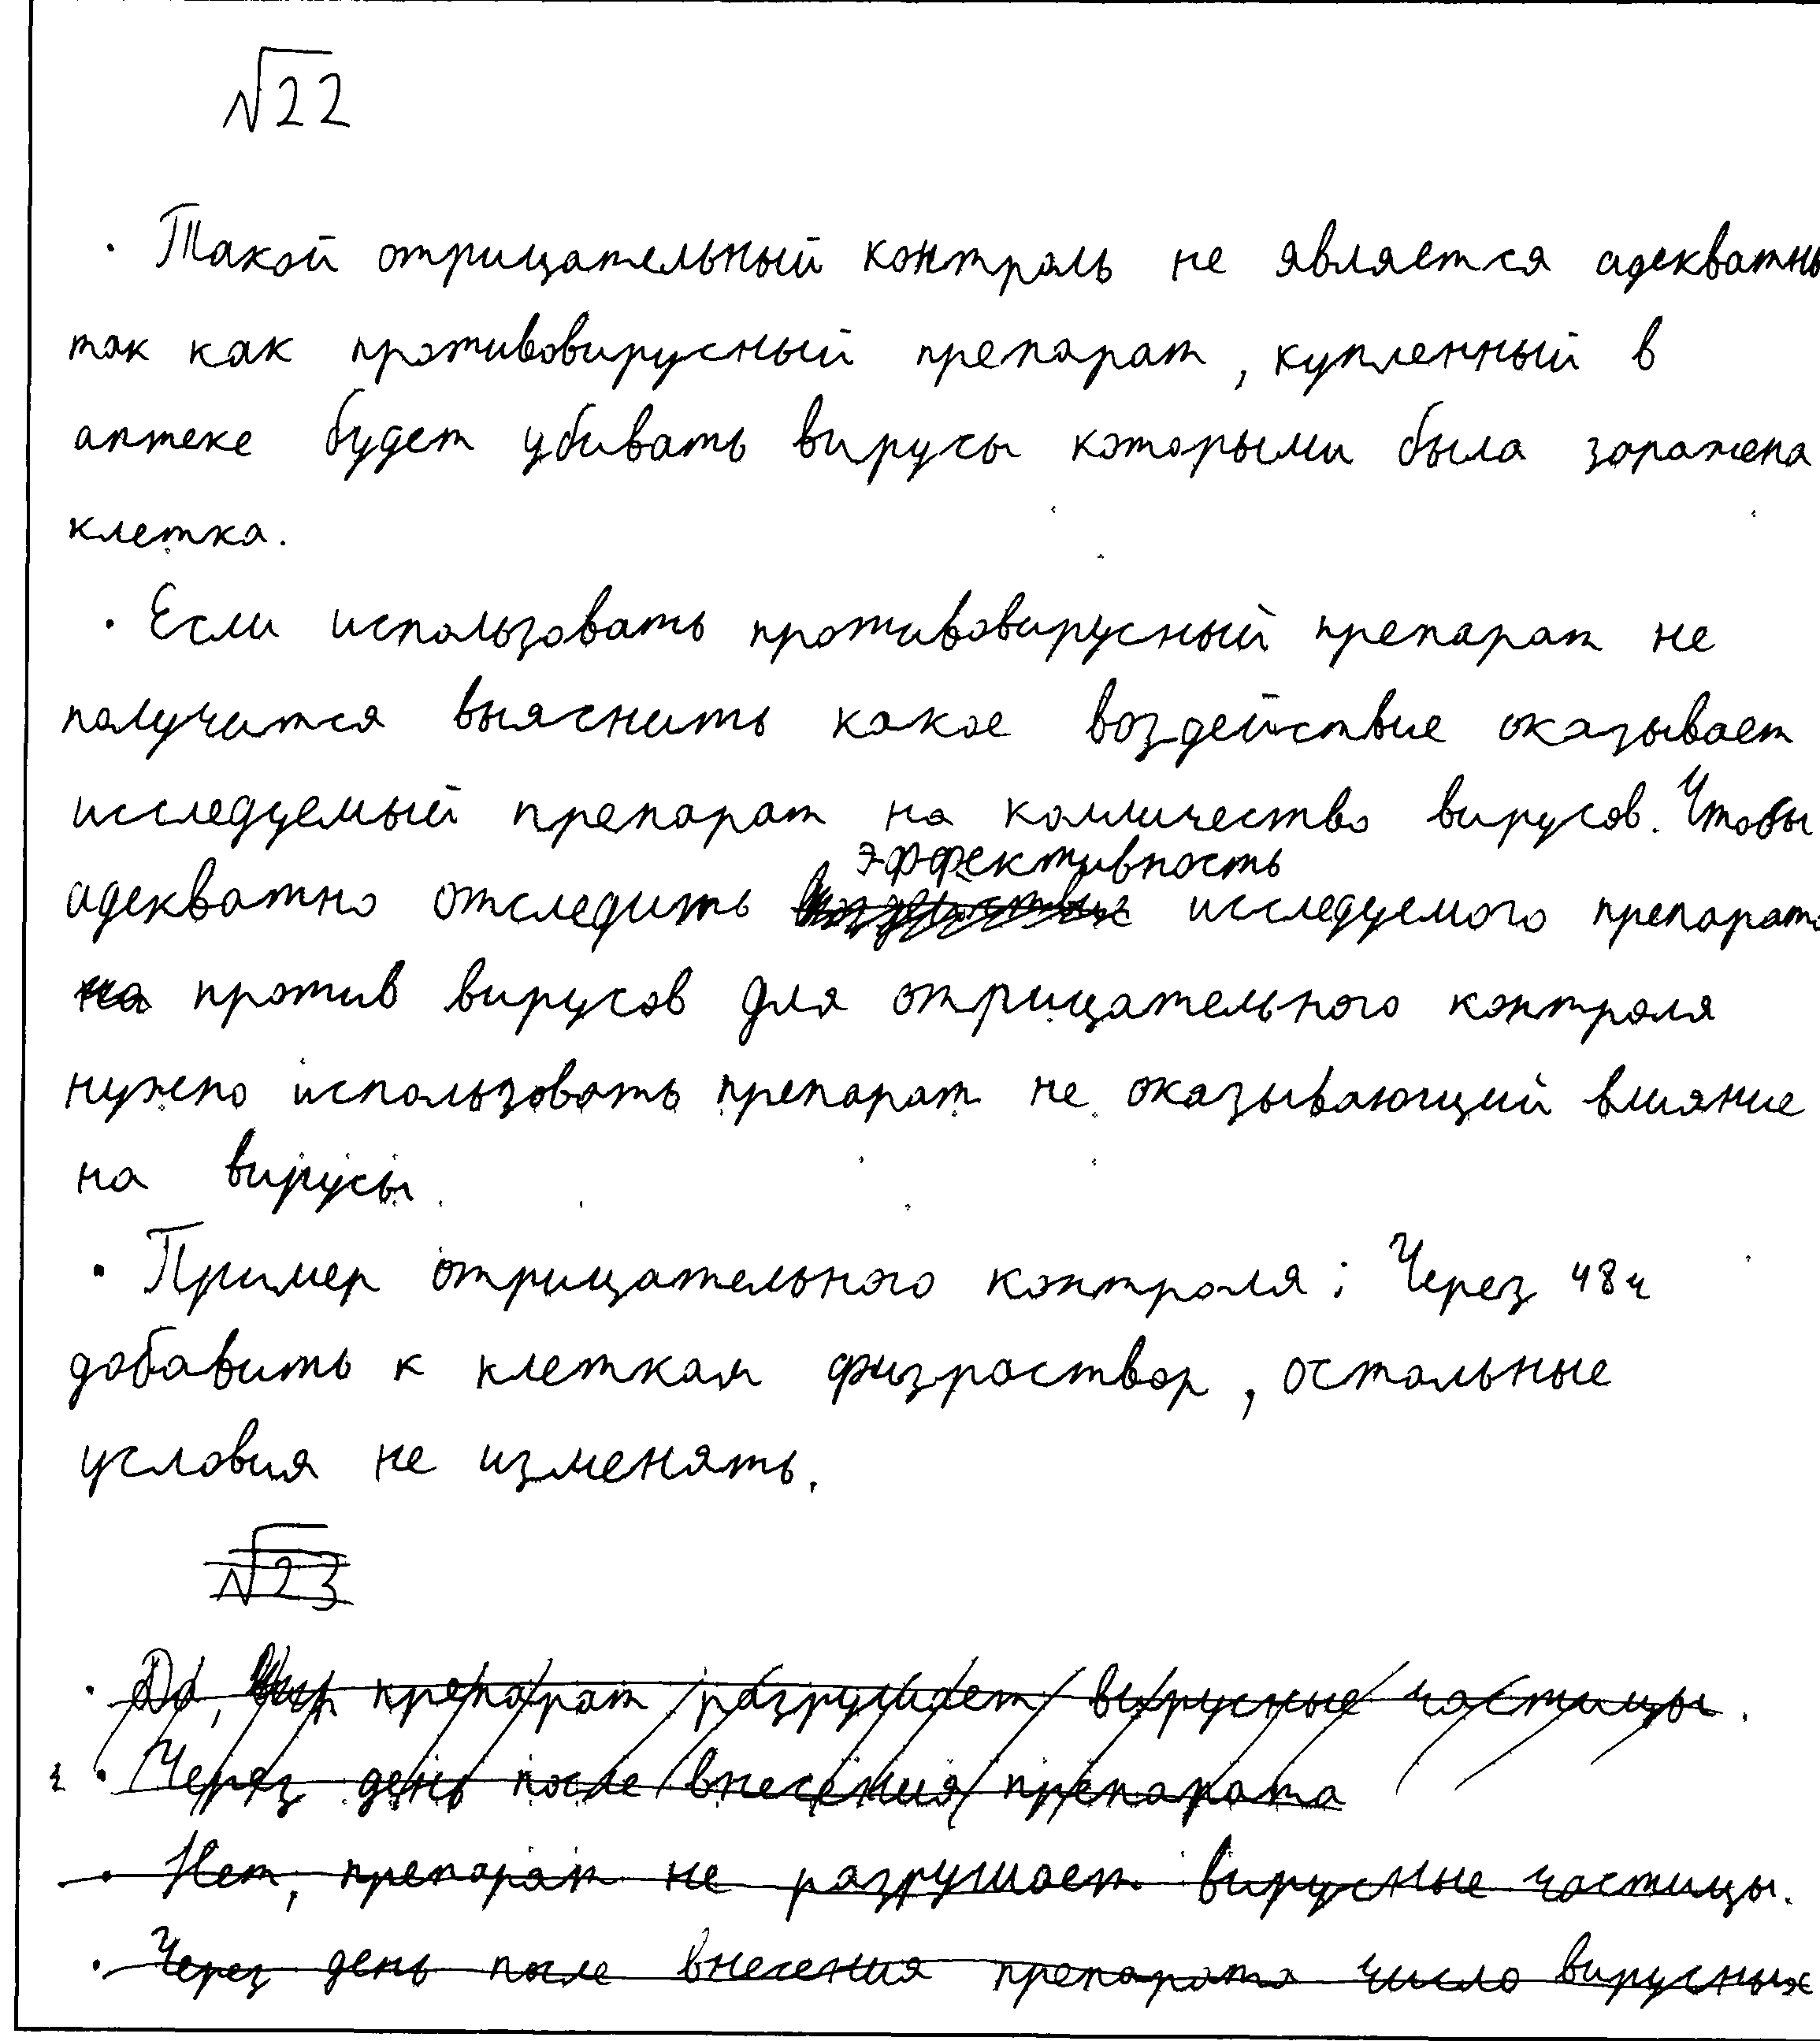 √22
· Такой отрицательный контроль не является адекватны
так как противовирусный препарат, купленный в
аптеке будет убивать вирусы которыми была заражена
клетка.
· Если использовать противовирусный препарат не
получится выяснить какое воздействие оказывает
исследуемый препарат на колличество вирусов. Чтобы
эффективность
адекватно отследить воздействие исследуемого препарата
на против вирусов для отрицательного контроля
нужно использовать препарат не оказывающий влияние
на вирусы.
· Пример отрицательного контроля: Через 48ч
добавить к клеткам физраствор, остальные
условия не изменять.
√23
· Да, препарат разрушает вирусные частицы.
· Через день после внесения препарата
· Нет, препарат не разрушает вирусные частицы.
· Через день после внесения препарата число вирусных